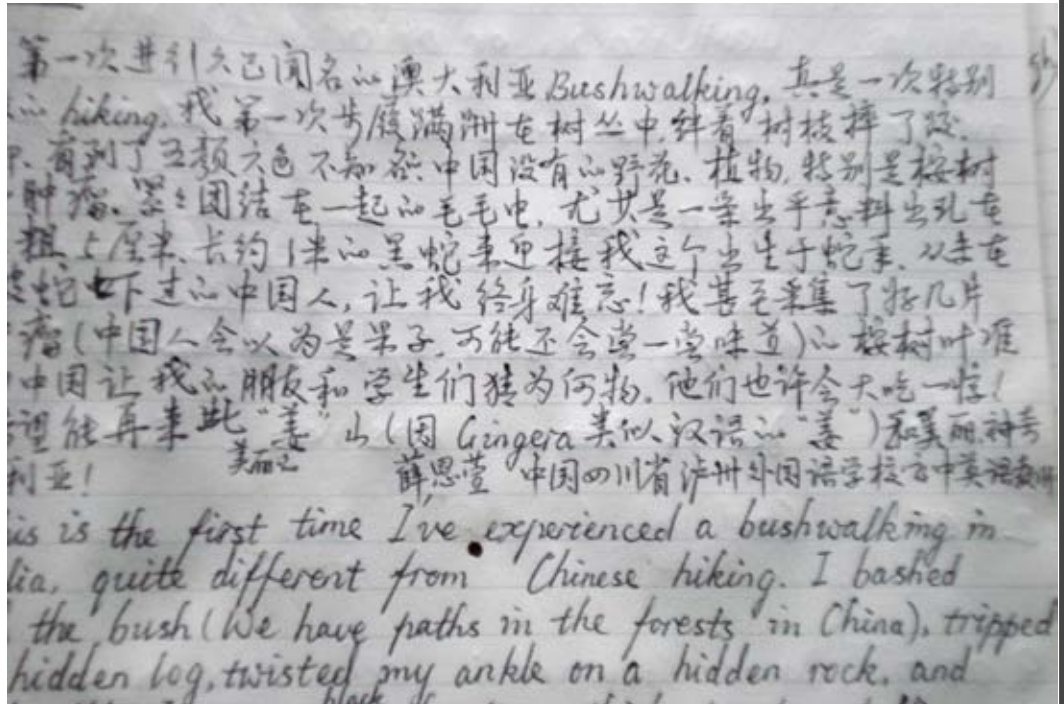 第一次进行久已闻名的澳大利亚Bushwalking,真是一次特别
的hiking.我第一次步履蹒跚在树丛中,绊着树枝摔了跤.
看到了五颜六色不知名中国没有的野花、植物,特别是桉树
肿瘤、紧紧团结在一起的毛毛虫,尤其是一条出乎意料出现在
粗5厘米、长约1米的黑蛇来迎接我这个出生于蛇年、从未在
蛇下过的中国人,让我终身难忘!我甚至采集了好几片
瘤(中国人会以为是果子,可能还会尝一尝味道)的桉树叶准
中国让我的朋友和学生们猜为何物,他们也许会大吃一惊!
望能再来此"姜"山(因Gingera类似汉语的"姜")和美丽神奇
利亚!
美丽之
薛思萱 中国四川省泸州外国语学校高中英语教师
is is the first time I've experienced a bushwalking in
lia, quite different from Chinese hiking. I bashed
the bush (We have paths in the forests in China), tripped
hidden log, twisted my ankle on a hidden rock, and
black